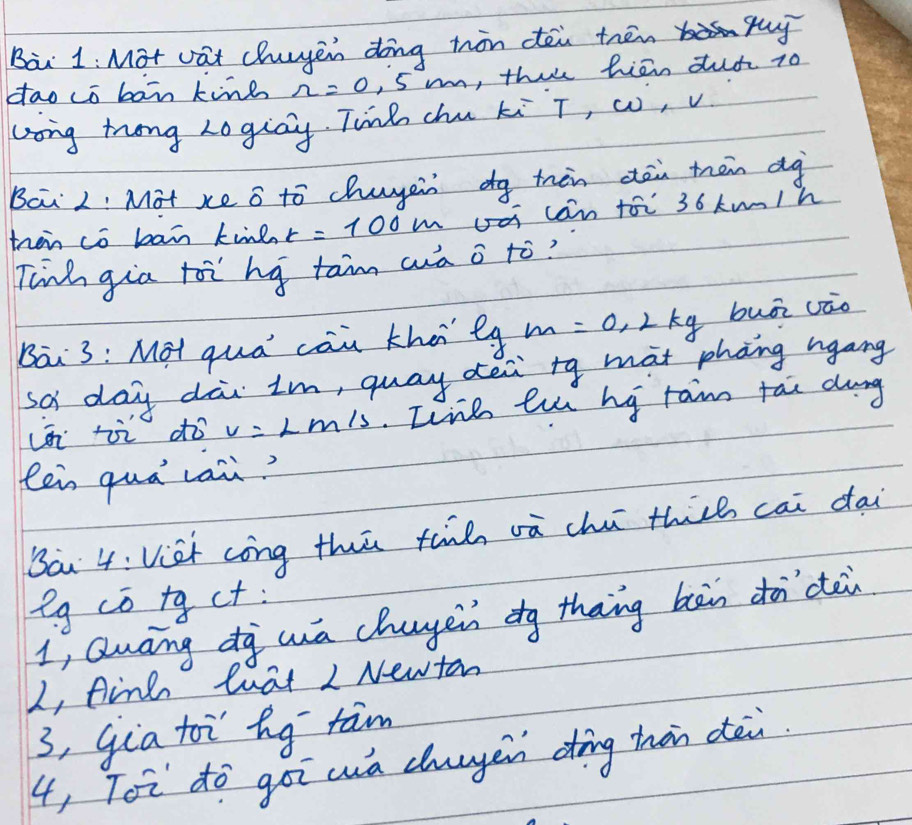 Bài 1: Một vật chuyển động tròn đều trên quỹ
đạo có bán kính r = 0,5 m, thực hiện được 10
vòng trong 20 giây. Tính chu kì T, ω, v.
Bài 2: Một xe ô tô chuyển đg tròn đều trên đg
tròn có bán kính r = 100 m với vận tốc 36 km/h
Tính gia tốc hg tâm của ô tô?
Bài 3: Một quả cầu khối lg m = 0,2 kg buộc vào
sợi dây dài 1m, quay đều tg mặt phẳng ngang
với tốc độ v = 2 m/s. Tính lực hg tâm tác dụng
lên quả cầu?
Bài 4: Viết công thức tính và chú thích các đại
lg có tg ct:
1, Quãng đg của chuyển đg thẳng biến đổi đều.
2, Định luật 2 Newton
3, Gia tốc hg tâm
4, Tốc độ góc của chuyển động tròn đều.